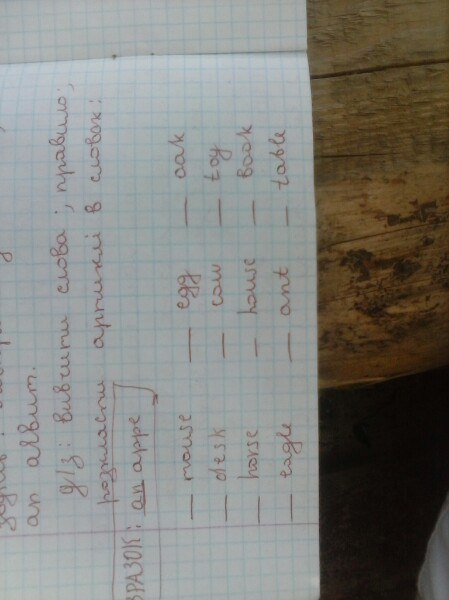 an album.
д/з: вивчити слова; правило;
розкласти артиклі в словах:
ЗРАЗОК: an appe
— mouse — egg — oak
— desk — cow — toy
— horse — house — book
— eagle — ant — table